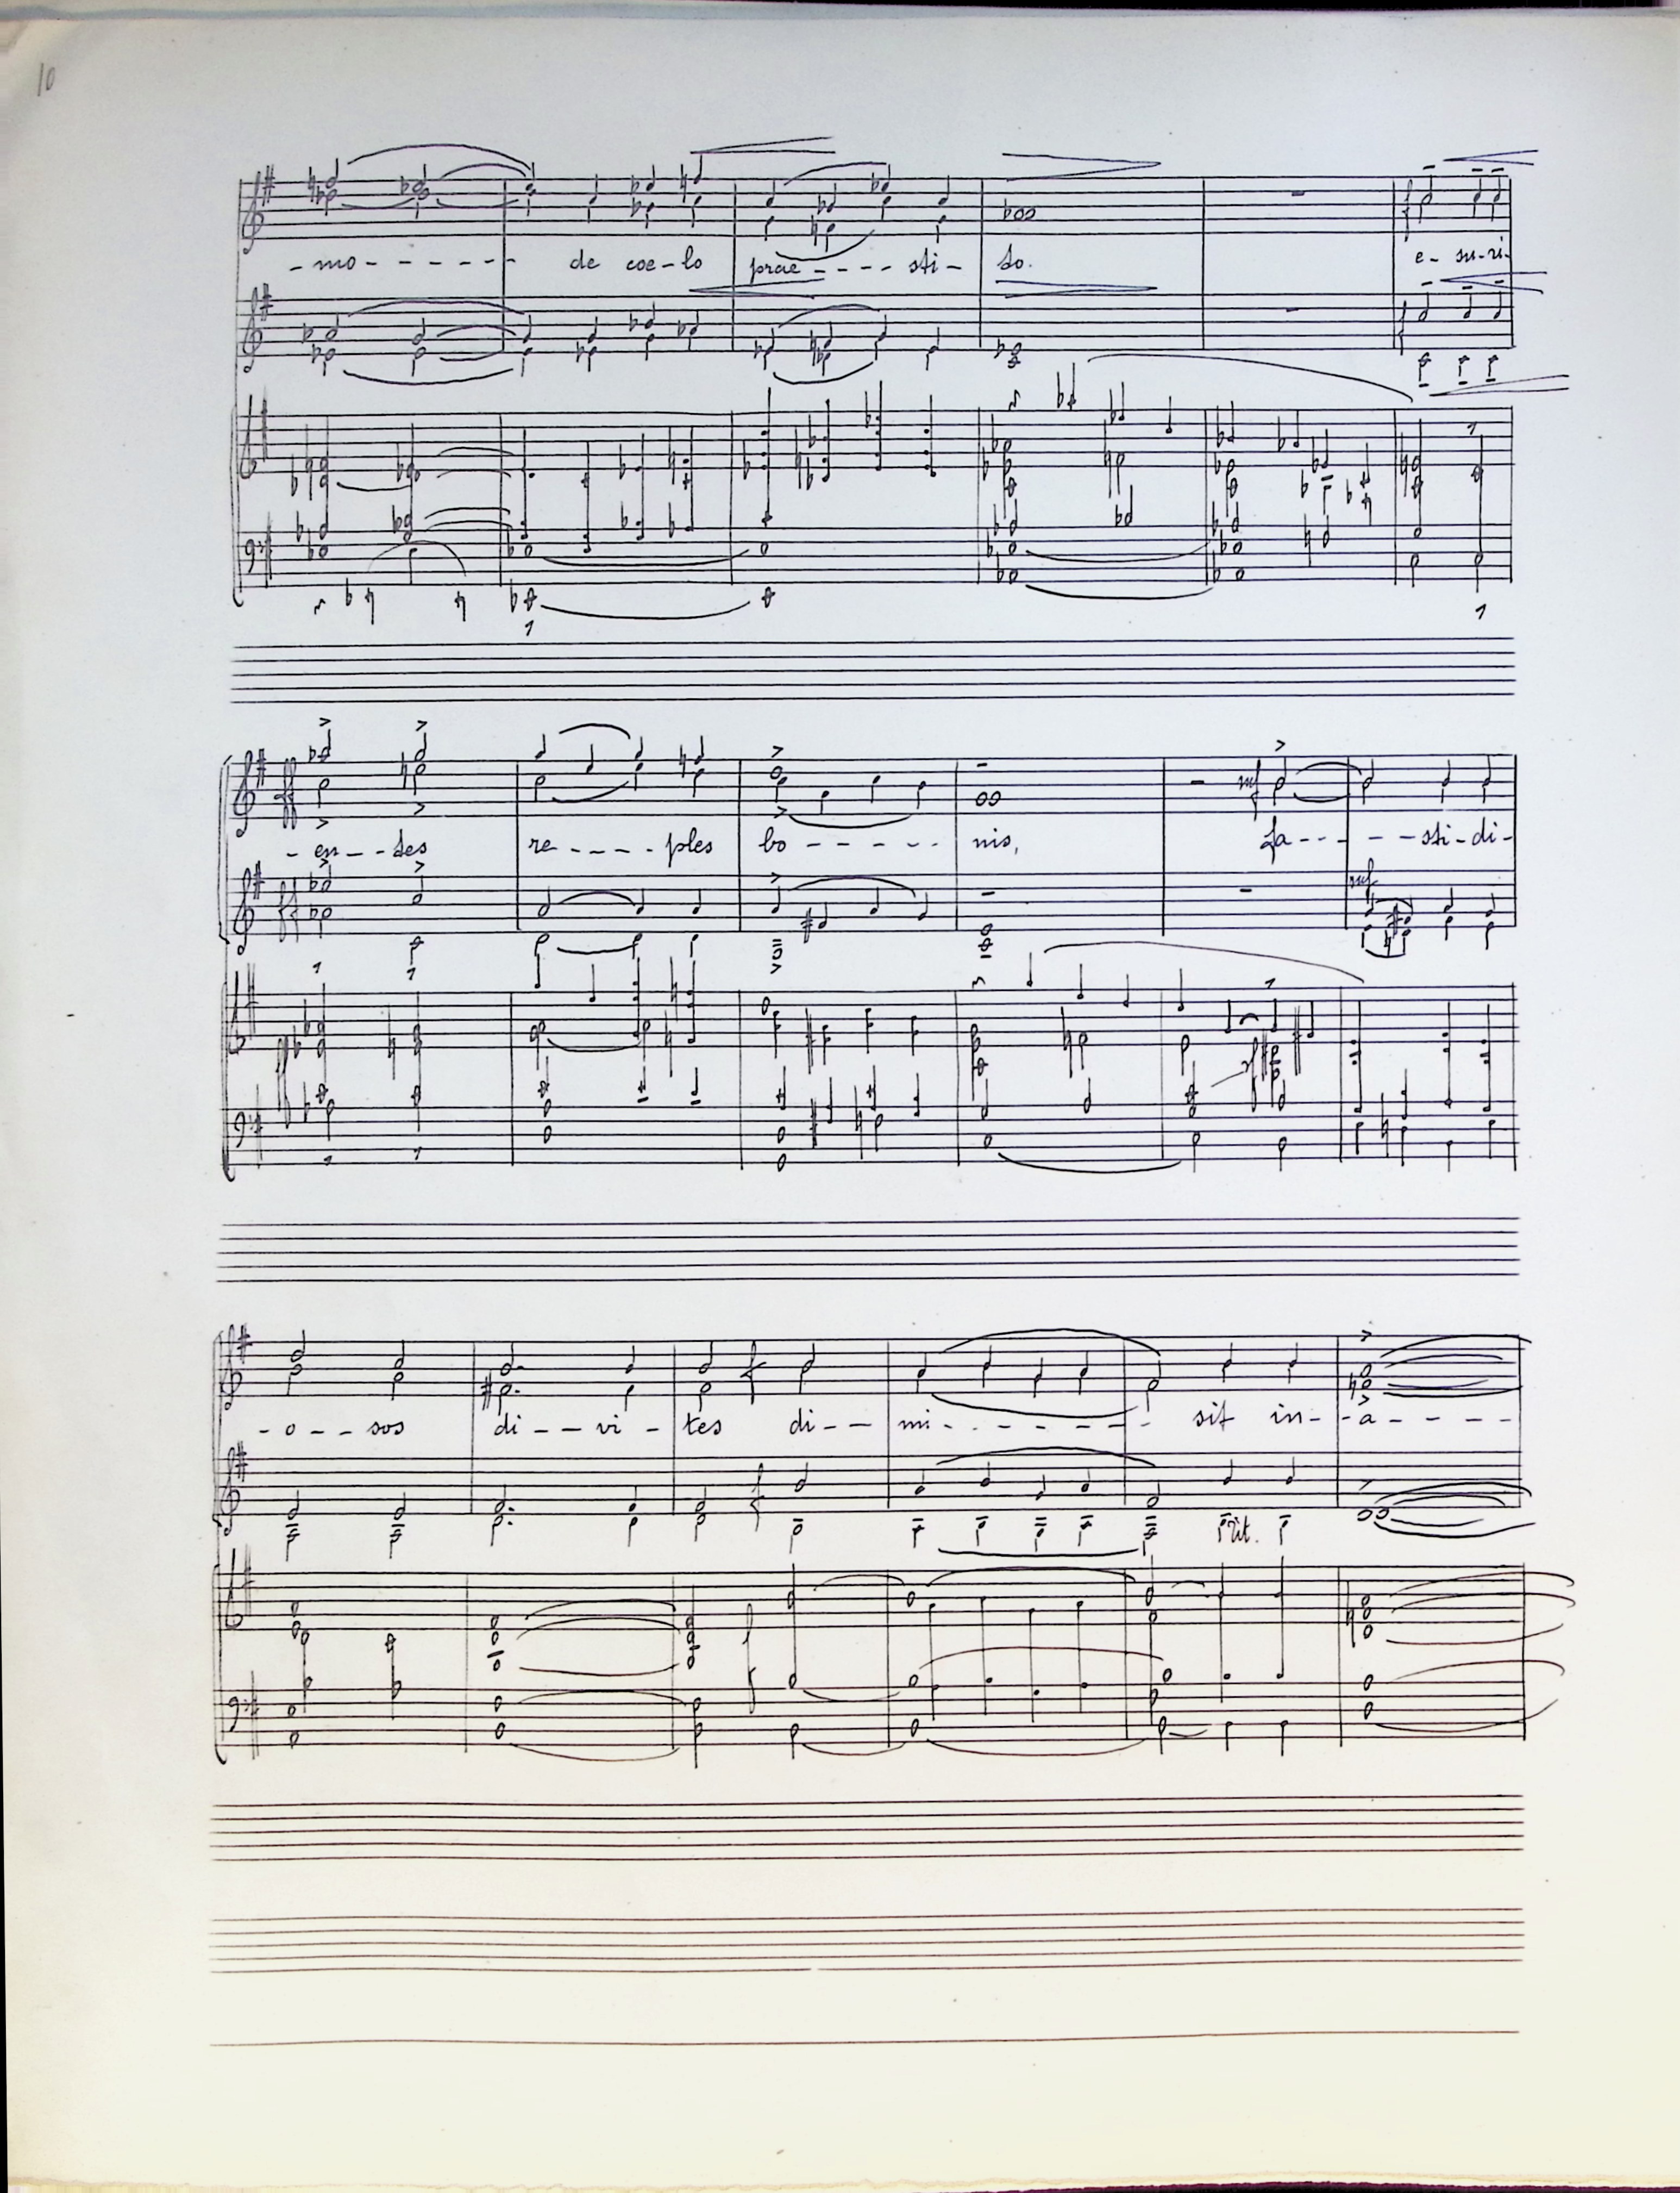 10
- mo - - - - - - de coe - lo prae - - - - sti - to. e - su - ri -
f
f
- en - - tes re - - - - ples bo - - - - - nis, mf fa - - - - - - sti - di -
ff
ff mf
- o - - sos di - - vi - tes di - - mi - - - - - - - sit in - - a - - - - -
f
f
rit.